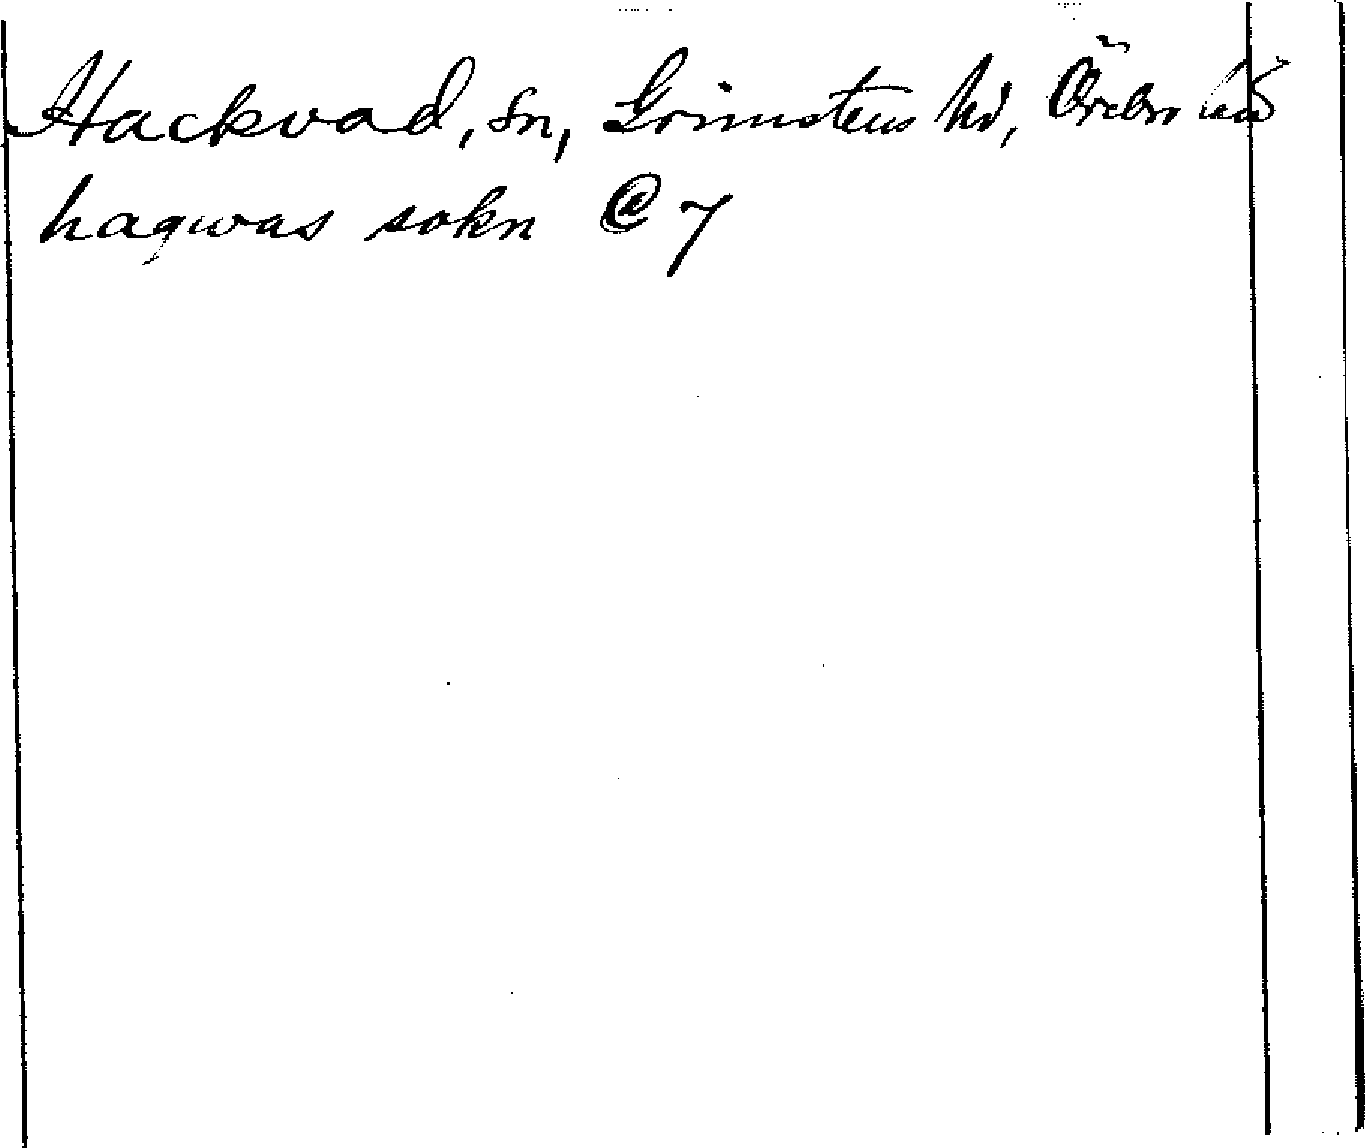 Hackvad, sn, Grimstens hd, Örebro län
haqwas sokn @ 7